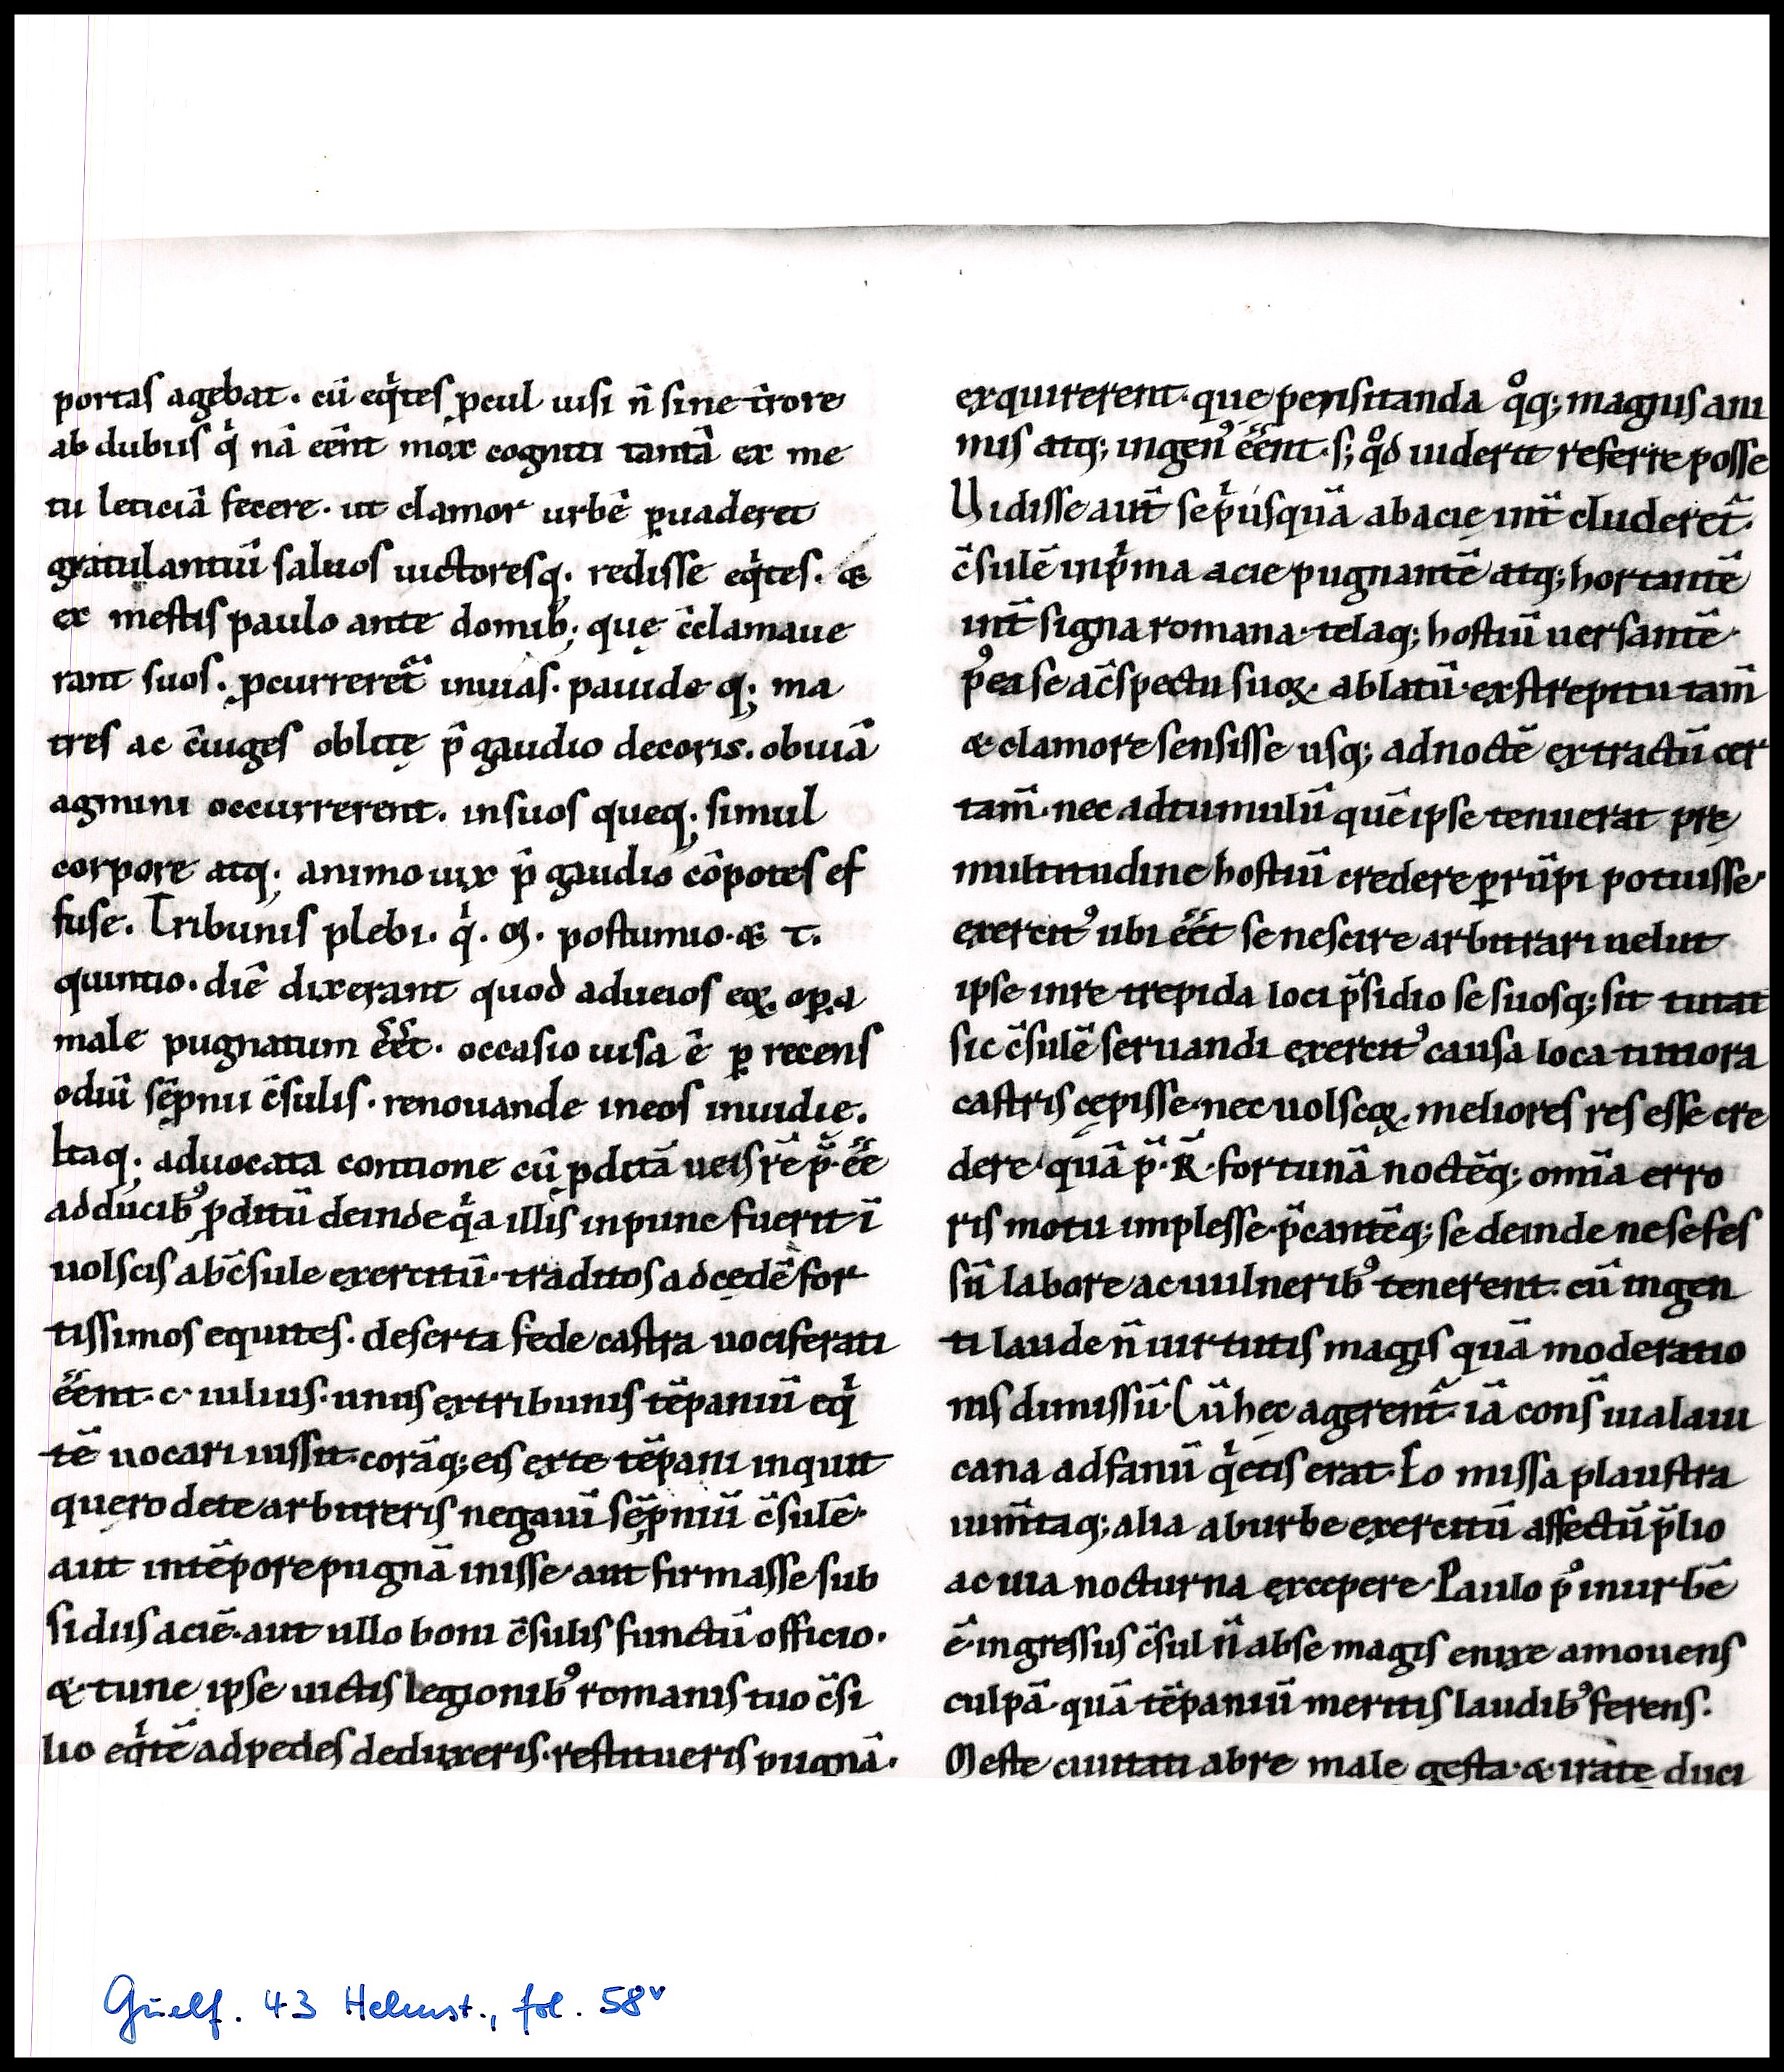 portas agebat. cū eq̇tes ꝓcul uisi n̄ sine t̄rore
ab dubiis q̇ nā eēnt mox cogniti tantā ex me
tu leticiā fecere. ut clamor urbē ꝑuaderet
gratulantiū saluos uictoresq; redisse eq̇tes. &
ex mestis paulo ante domib; quę c̄clamaue
rant suos. ꝓcurreret᷑ inuias. pauide q; ma
tres ac c̄iuges oblitę p̄ gaudio decoris. obuiā
agmini occurrerent. insuos queq; simul
corpore atq; animo uix p̄ gaudio cōpotes ef
fuse. Tribunis plebi. q̇. m. postumio. & t.
quintio. diē dixerant quod adueios eoꝝ opꝑa
male pugnatum ēēt. occasio uisa ē ꝑ recens
odiū sēpnii c̄sulis. renouande ineos inuidie.
Itaq; aduocata contione cū ꝓditā ueis rē p̄. ēē
ad ducibꝰ ꝓditū deinde q̇a illis inpune fuerit ī
uolscis abc̄sule exercitū. traditos ad cędē for
tissimos equites. deserta fede castra uociferati
ēēnt. c. iulius. unus extribunis tēpaniū eq̇
tē uocari iussit. corāq; eis exte tēpani inquit
quęro dete arbitreris negauī sēpniū c̄sulē.
aut intēpore pugnā inisse aut firmasse sub
sidiis aciē. aut ullo boni c̄sulis functū officio.
& tune ipse uictis legionibꝰ romanis tuo c̄si
lio eq̇tē adpedes deduxeris. restitueris pugnā.
exquirerent. quę pensitanda q̊q; magnis ani
mis atq; ingenꝰ ēēnt. s; q̊d uiderit referre posse
Uidisse aut̄ se pṙusquā abacię int̄ cluderet᷑.
c̄sulē inpṙma acie pugnantē atq; hortantē
int̄ signa romana. telaq; hostiū uersantē.
pꝰea se ac̄spectu suoꝝ. ablatū. exstrepitu tam̄
& clamore sensisse usq; adnoctē extractū cer
tam̄. nec adtumulū quē ipse tenuerat prę
multitudine hostiū credere ꝑrūpi potuisse.
exercitꝰ ubi ēēt se nescire arbitrari uelut
ipse inre trepida loci p̄sidio se suosq; sit tutat᷑
sic c̄sulē seruandi exercitꝰ causa loca tutiora
castris cępisse. nec uolscoꝝ. meliores res esse cre
dere. quā p̄. R̄. fortunā noctēq; omīa erro
ris motu implesse. p̄cantēq; se deinde nesefes
sū labore ac uulneribꝰ tenerent. cū ingen
ti laude n̄ uirtutis magis quā moderatio
nis dimissū. Cū hęc agerent᷑. iā cons̄ uialaui
cana adfanū q̇ętis erat. Eo missa plaustra
ium̄taq; alia aburbe exercitū affectū p̄lio
ac uia nocturna excepere. Paulo pꝰ inurbē
ē. ingressus c̄sul n̄ abse magis enixe amouens
culpā. quā tēpaniū meritis laudibꝰ ferens.
Męste ciuitati abre male gesta. & irate duci
Guelf. 43 Helmst., fol. 58v